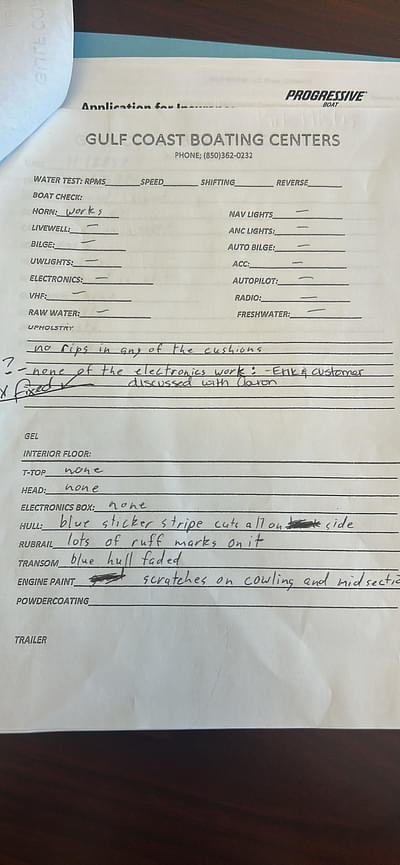 PROGRESSIVE
BOAT
Application for Insurance
GULF COAST BOATING CENTERS
PHONE; (850)362-0232
WATER TEST: RPMS______SPEED______ SHIFTING______ REVERSE______
BOAT CHECK:
HORN: works NAV LIGHTS —
LIVEWELL: — ANC LIGHTS: —
BILGE: — AUTO BILGE: —
UWLIGHTS: — ACC: —
ELECTRONICS: — AUTOPILOT: —
VHF: — RADIO: —
RAW WATER: — FRESHWATER: —
UPHOLSTRY
no rips in any of the cushions
? - none of the electronics work: - Erik & customer
x fixed ✓ discussed with
GEL
INTERIOR FLOOR:
T-TOP none
HEAD: none
ELECTRONICS BOX: none
HULL: blue sticker stripe cuts all on side
RUBRAIL lots of ruff marks on it
TRANSOM blue hull faded
ENGINE PAINT scratches on cowling and midsectio
POWDERCOATING
TRAILER